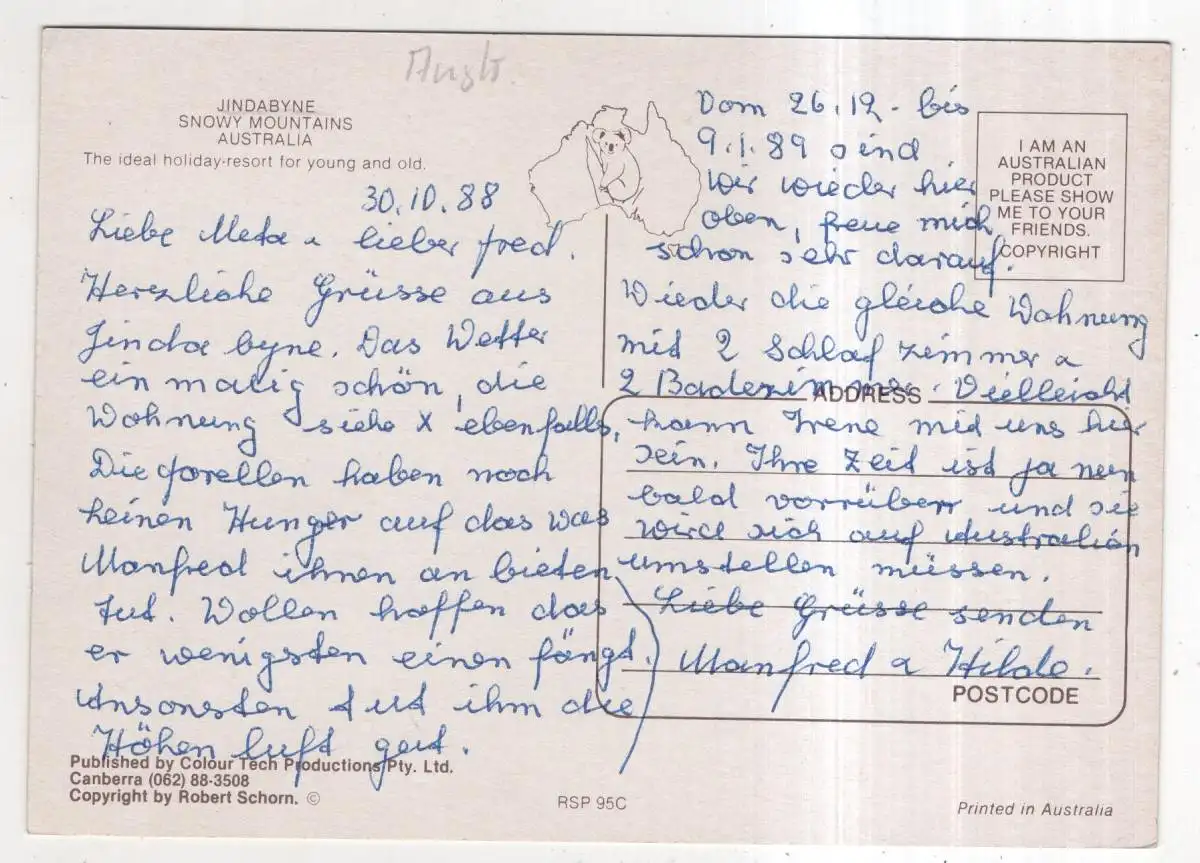 Austr.
JINDABYNE
SNOWY MOUNTAINS
AUSTRALIA
The ideal holiday-resort for young and old.
30.10.88
Liebe Meta u lieber Fred.
Herzliche Grüsse aus
Jindabyne. Das Wetter
ein malig schön, die
Wohnung siehe X ebenfalls,
Die Forellen haben noch
keinen Hunger auf das was
Manfred ihnen an bieten
tut. Wollen hoffen das
er wenigsten einen fängt.
Ansonsten tut ihm die
Höhen luft gut.
Vom 26.12. bis
9.1.89 sind
wir wieder hier
oben, freue mich
schon sehr darauf.
Wieder die gleiche Wohnung
mit 2 Schlaf zimmer u
2 Badezimmer. Vielleicht
kann Irene mit uns hier
sein. Ihre Zeit ist ja nun
bald vorrüber und sie
wird sich auf Australien
umstellen müssen.
Liebe Grüsse senden
Manfred u Hilde.
I AM AN
AUSTRALIAN
PRODUCT
PLEASE SHOW
ME TO YOUR
FRIENDS.
COPYRIGHT
ADDRESS
POSTCODE
Published by Colour Tech Productions Pty. Ltd.
Canberra (062) 88-3508
Copyright by Robert Schorn. ©
RSP 95C
Printed in Australia